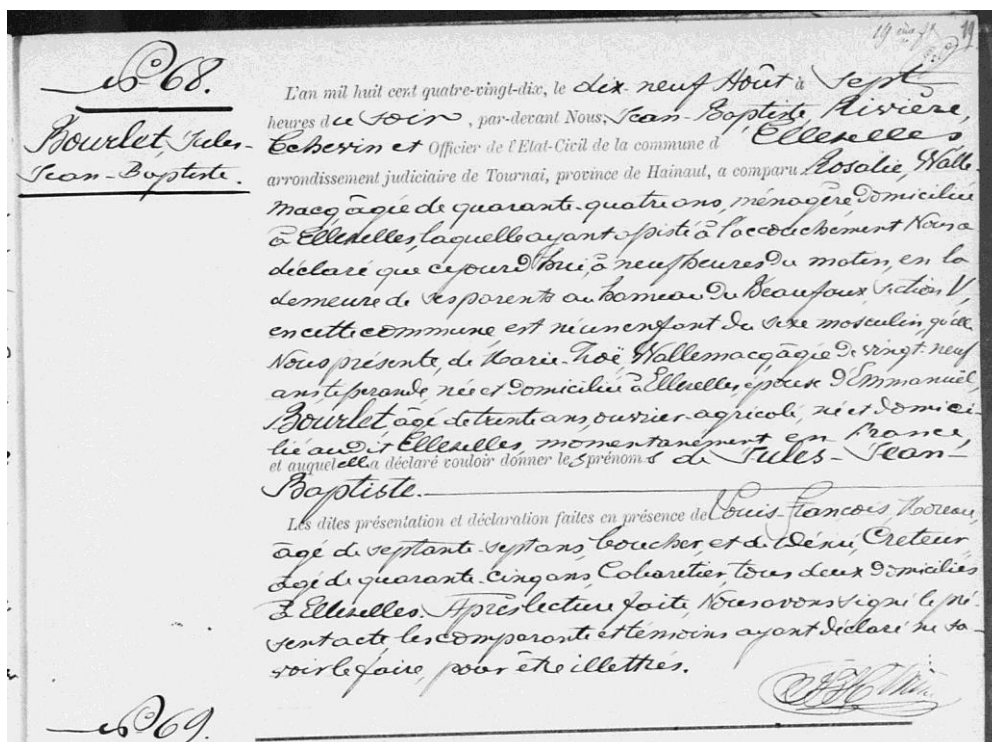 19
N° 68.
Bourlet, Jules-
Jean-Baptiste.
L'an mil huit cent quatre-vingt-dix, le dix-neuf Août à sept
heures du soir, par-devant Nous, Jean-Baptiste, Rivière,
Echevin et Officier de l'Etat-Civil de la commune d'Ellezelles,
arrondissement judiciaire de Tournai, province de Hainaut, a comparu Rosalie, Walle-
macq, âgée de quarante-quatre ans, ménagère domiciliée
à Ellezelles, laquelle ayant assisté à l'accouchement Nous a
déclaré que cejourd'hui, à neuf heures du matin, en la
demeure de ses parents au hameau du Beaufaux, section V,
en cette commune, est né un enfant du sexe masculin, qu'elle
Nous présente, de Marie-Zoë Wallemacq, âgée de vingt-neuf
ans, née et domiciliée à Ellezelles, épouse d'Emmanuël,
Bourlet, âgé de trente ans, ouvrier agricole, né et domici-
lié audit Ellezelles, momentanément en France,
et auquel elle a déclaré vouloir donner les prénoms de Jules-Jean-
Baptiste.
Les dites présentation et déclaration faites en présence de Louis-François, Moreau,
âgé de septante-sept ans, boucher, et de Créteur,
âgé de quarante-cinq ans, Cabaretier, tous deux domiciliés
à Ellezelles. Après lecture faite, Nous avons signé le pré-
sent acte les comparante et témoins ayant déclaré ne sa-
voir le faire, pour être illettrés.
N° 69.